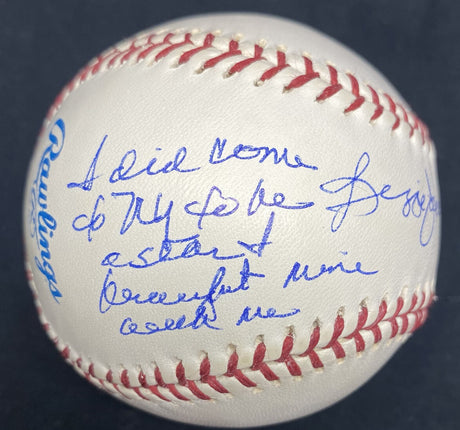 Rawlings
I did come
to NY to be
a star I
brought mine
with me
Reggie